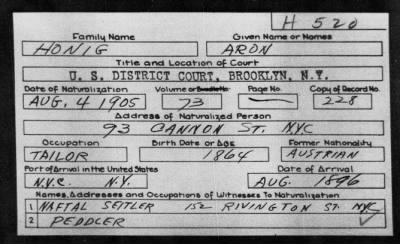 H 520
Family Name Given Name or Names
HONIG ARON
Title and Location of Court
U. S. DISTRICT COURT, BROOKLYN, N.Y.
Date of Naturalization Volume or Bundle No. Page No. Copy of Record No.
AUG. 4 1905 73 — 228
Address of Naturalized Person
93 CANNON ST. NYC
Occupation Birth Date or Age Former Nationality
TAILOR 1864 AUSTRIAN
Port of Arrival in the United States Date of Arrival
N.Y.C. N.Y. AUG. 1896
Names, Addresses and Occupations of Witnesses To Naturalization
1 NAFTAL SEITLER 152 RIVINGTON ST. NYC
2 PEDDLER